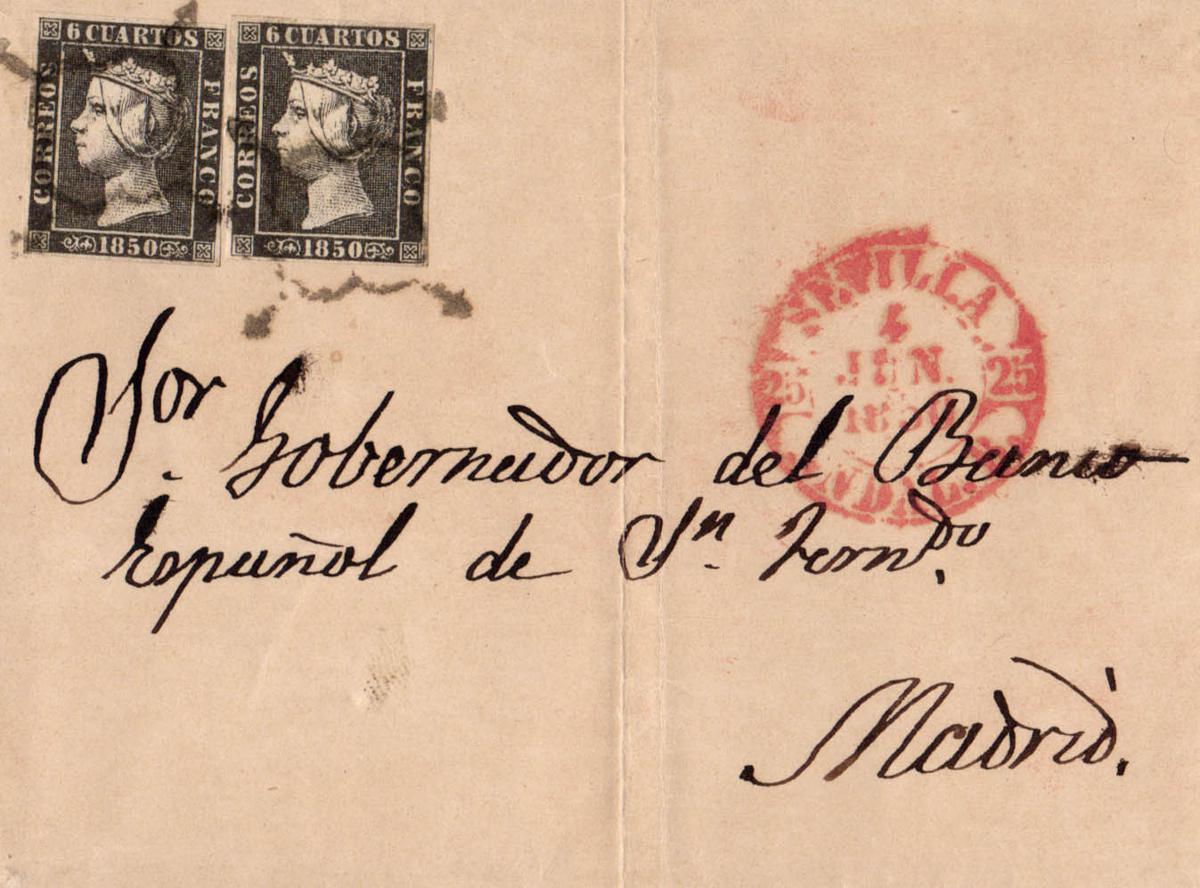 6 CUARTOS
CORREOS
FRANCO
1850
6 CUARTOS
CORREOS
FRANCO
1850
SEVILLA
4
JUN.
1850
25
25
Sor. Gobernador del Banco
Español de Sn. Fernᵈᵒ.
Madrid.